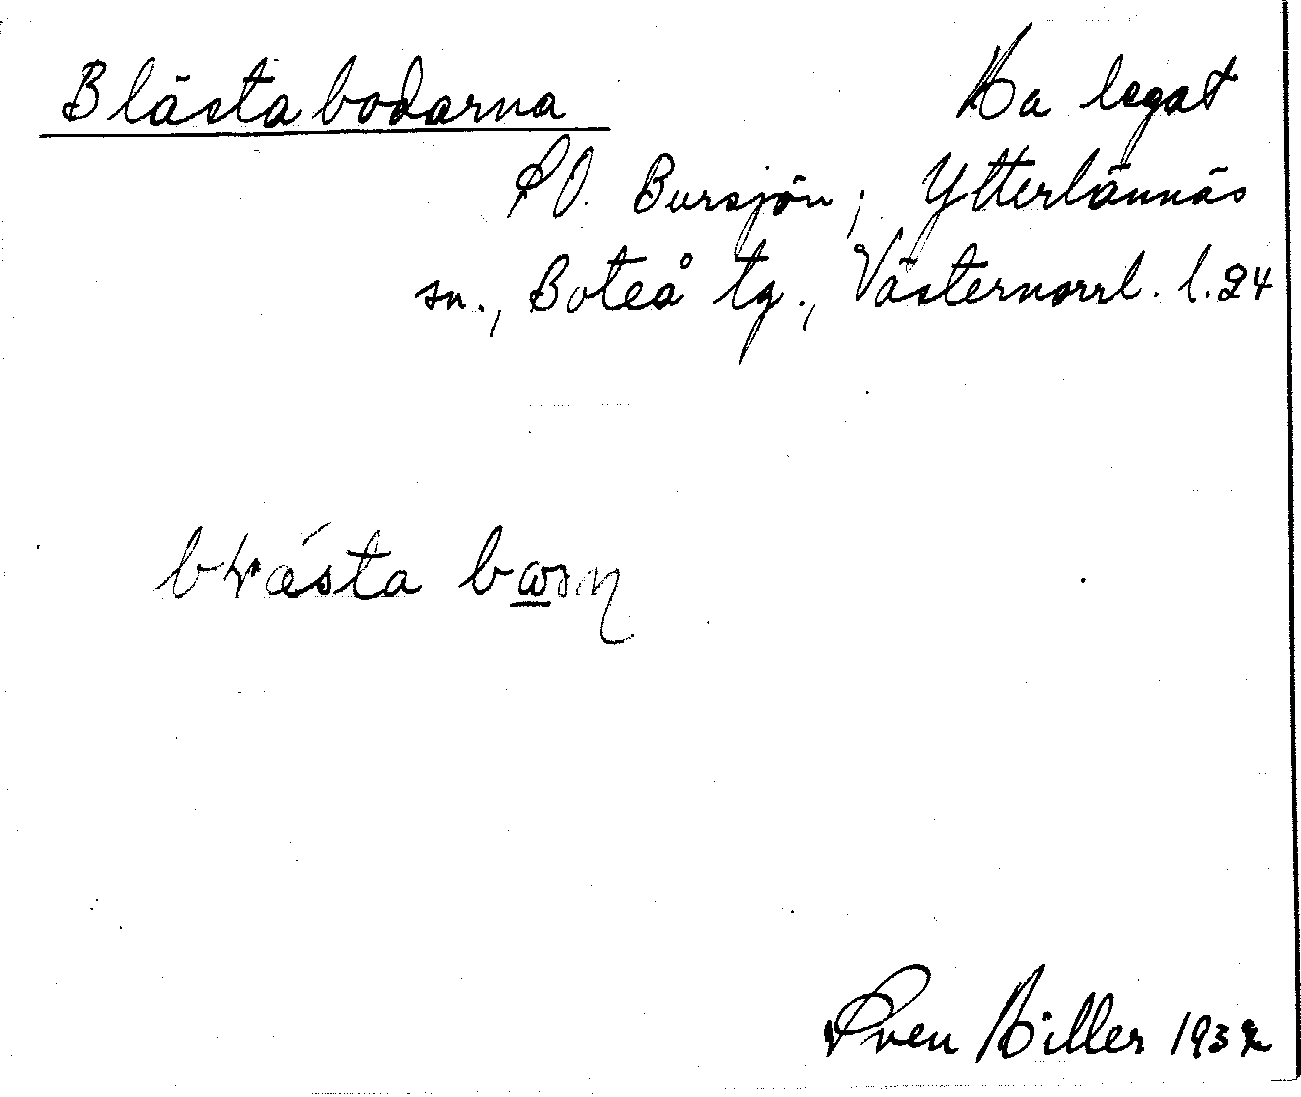 Blästabodarna
Ha legat
SO. Bursjön; Ytterlännäs
sn., Boteå tg., Västernorrl. l. 24
Sven Hiller 1932